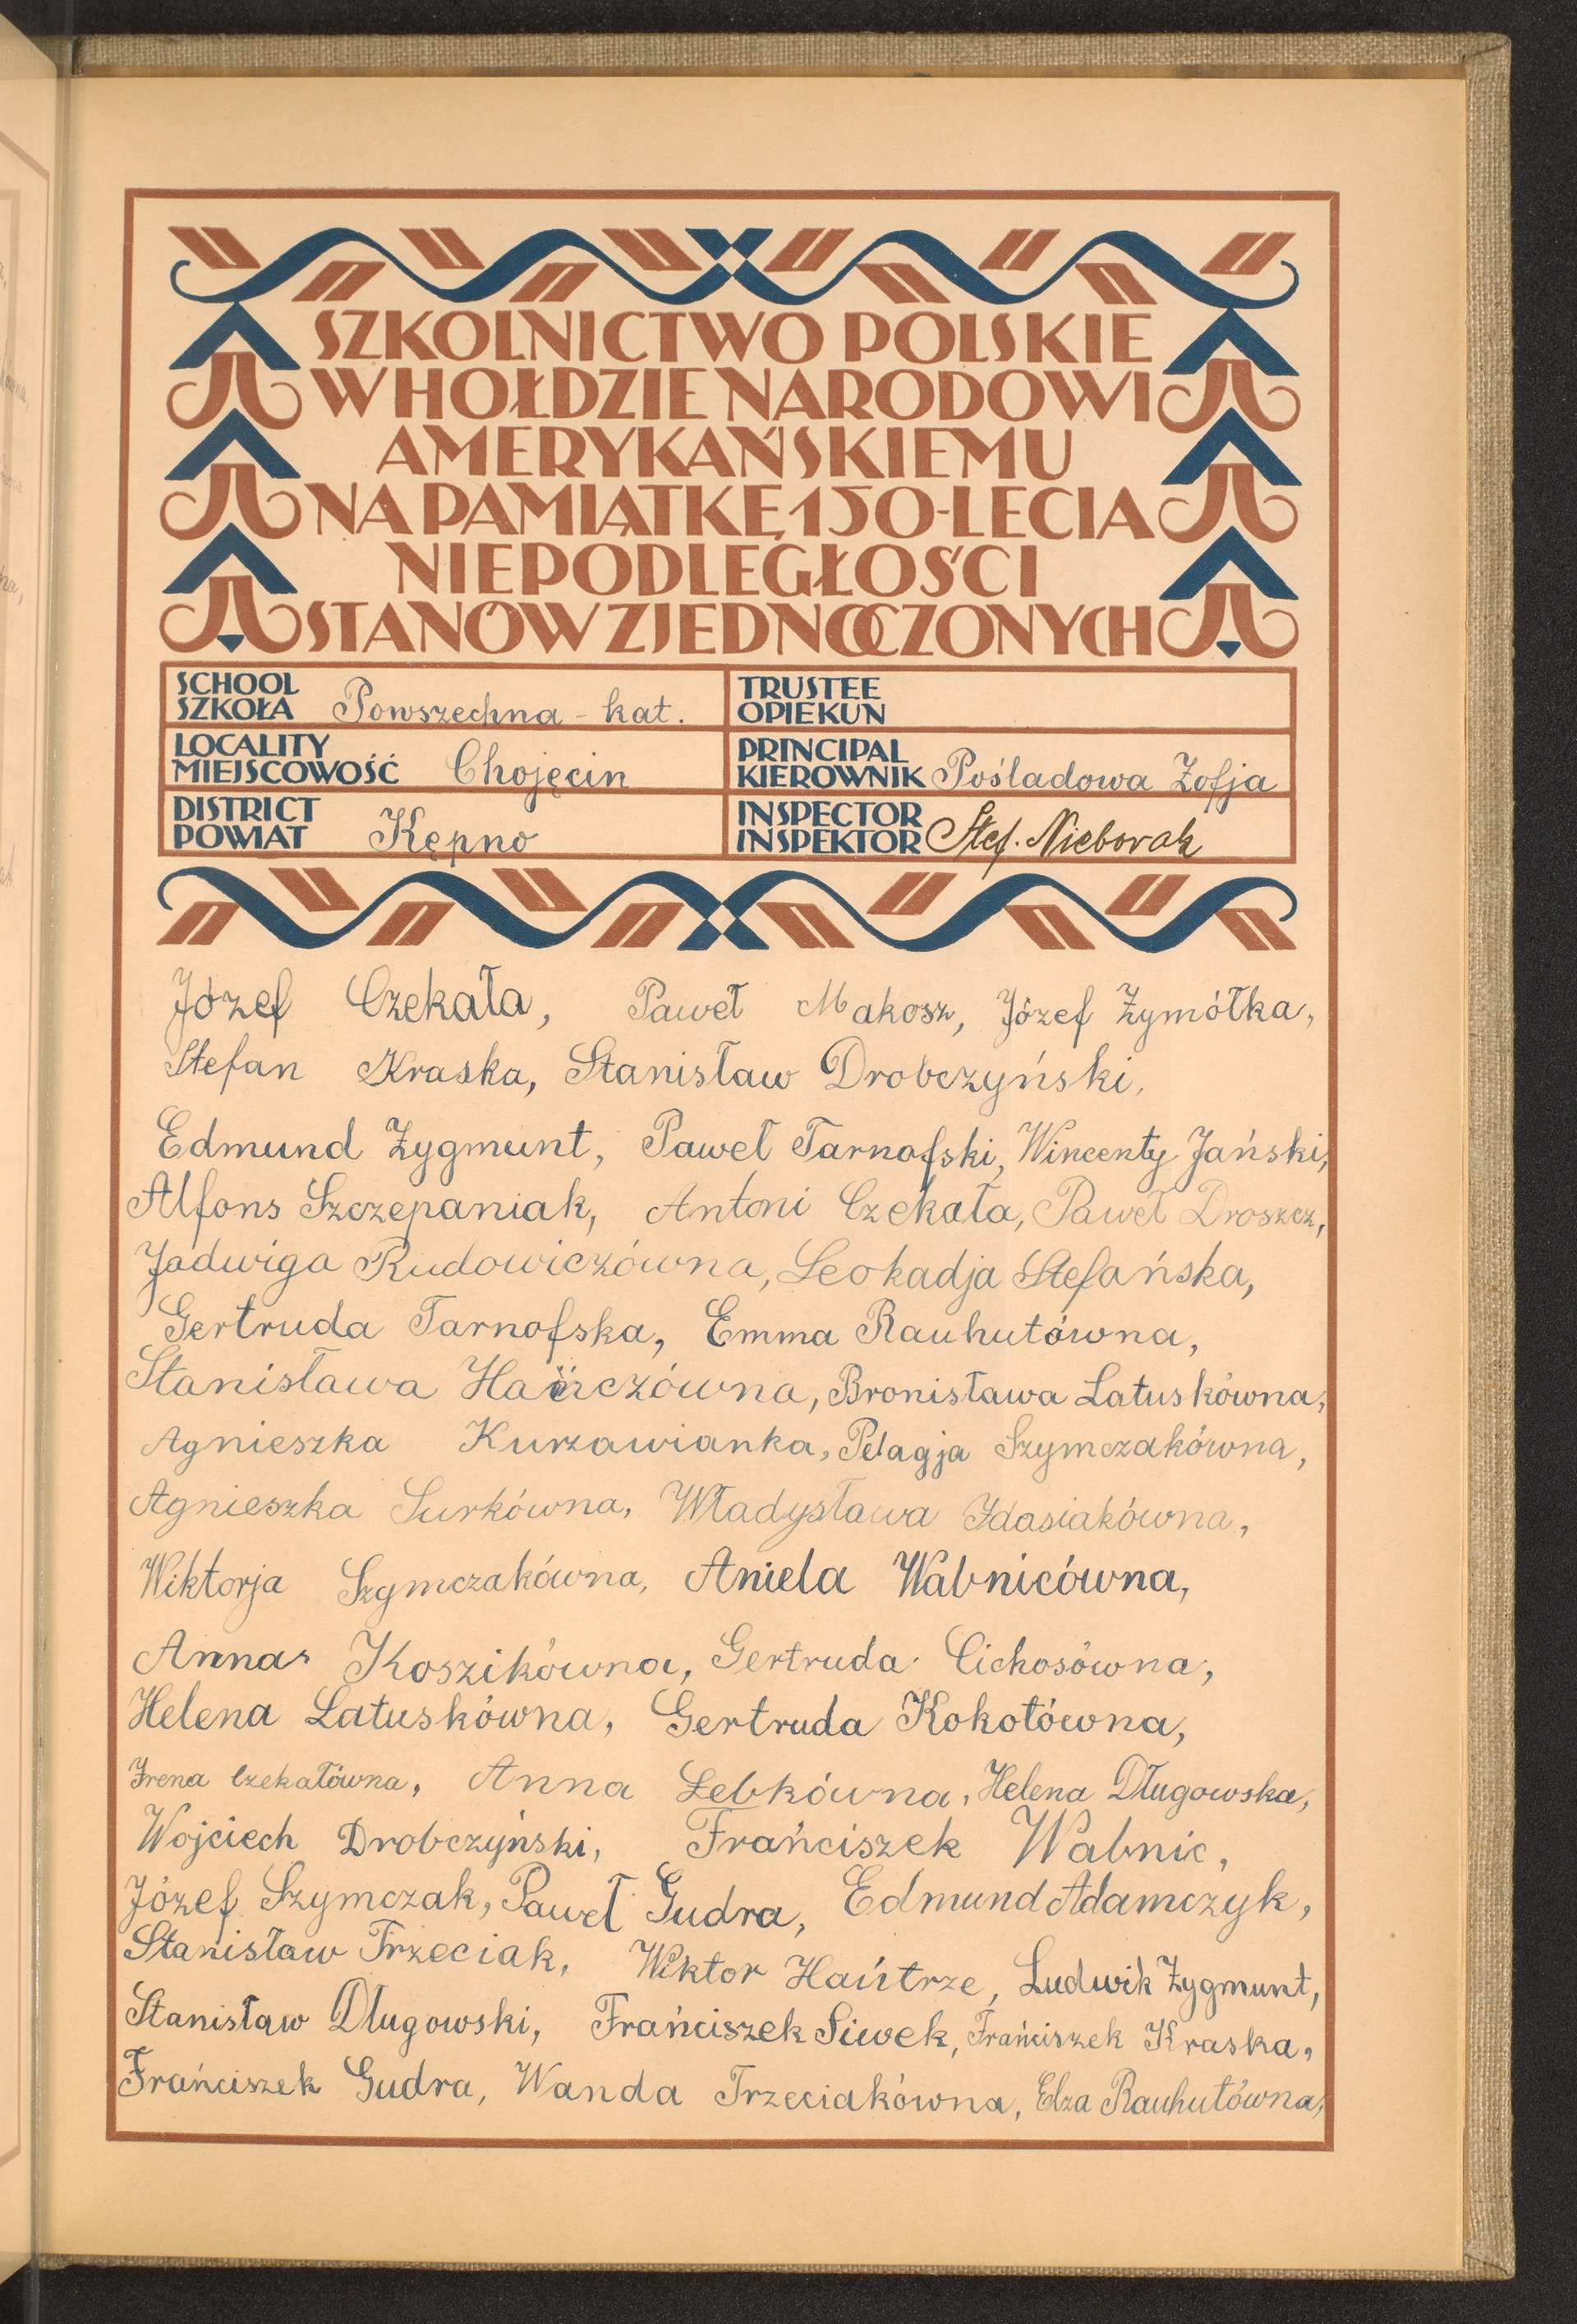 SZKOLNICTWO POLSKIE
W HOŁDZIE NARODOWI
AMERYKAŃSKIEMU
NA PAMIĄTKĘ 150-LECIA
NIEPODLEGŁOŚCI
STANÓW ZJEDNOCZONYCH
SCHOOL
SZKOŁA Powszechna - kat.
TRUSTEE
OPIEKUN
LOCALITY
MIEJSCOWOŚĆ Chojęcin
PRINCIPAL
KIEROWNIK Pośladowa Zofja
DISTRICT
POWIAT Kępno
INSPECTOR
INSPEKTOR Stef. Nieborak
Józef Czekała, Paweł Makosz, Józef Żymółka,
Stefan Kraska, Stanisław Drobczyński,
Edmund Zygmunt, Paweł Tarnofski, Wincenty Jański,
Alfons Szczepaniak, Antoni Czekała, Paweł Droszcz,
Jadwiga Rudowiczówna, Leokadja Stefańska,
Gertruda Tarnofska, Emma Rauhutówna,
Stanisława Bronisława Latuskówna,
Agnieszka Kurzawianka, Pelagja Szymczakówna,
Agnieszka Surkówna, Władysława Idasiakówna,
Wiktorja Szymczakówna, Aniela Wabnicówna,
Anna Koszikówna, Gertruda Cichosówna,
Helena Latuskówna, Gertruda Kokotówna,
Irena Czekałówna, Anna Lebkówna, Helena Długowska,
Wojciech Drobczyński, Frańciszek Wabnic,
Józef Szymczak, Paweł Gudra, Edmund Adamczyk,
Stanisław Trzeciak, Wiktor Haútrze, Ludwik Zygmunt,
Stanisław Długowski, Frańciszek Siwek, Frańciszek Kraska,
Frańciszek Gudra, Wanda Trzeciakówna, Elza Rauhutówna,